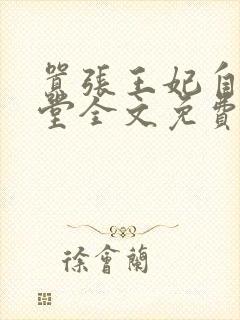 囂張王妃自
堂全文免費
徐會蘭